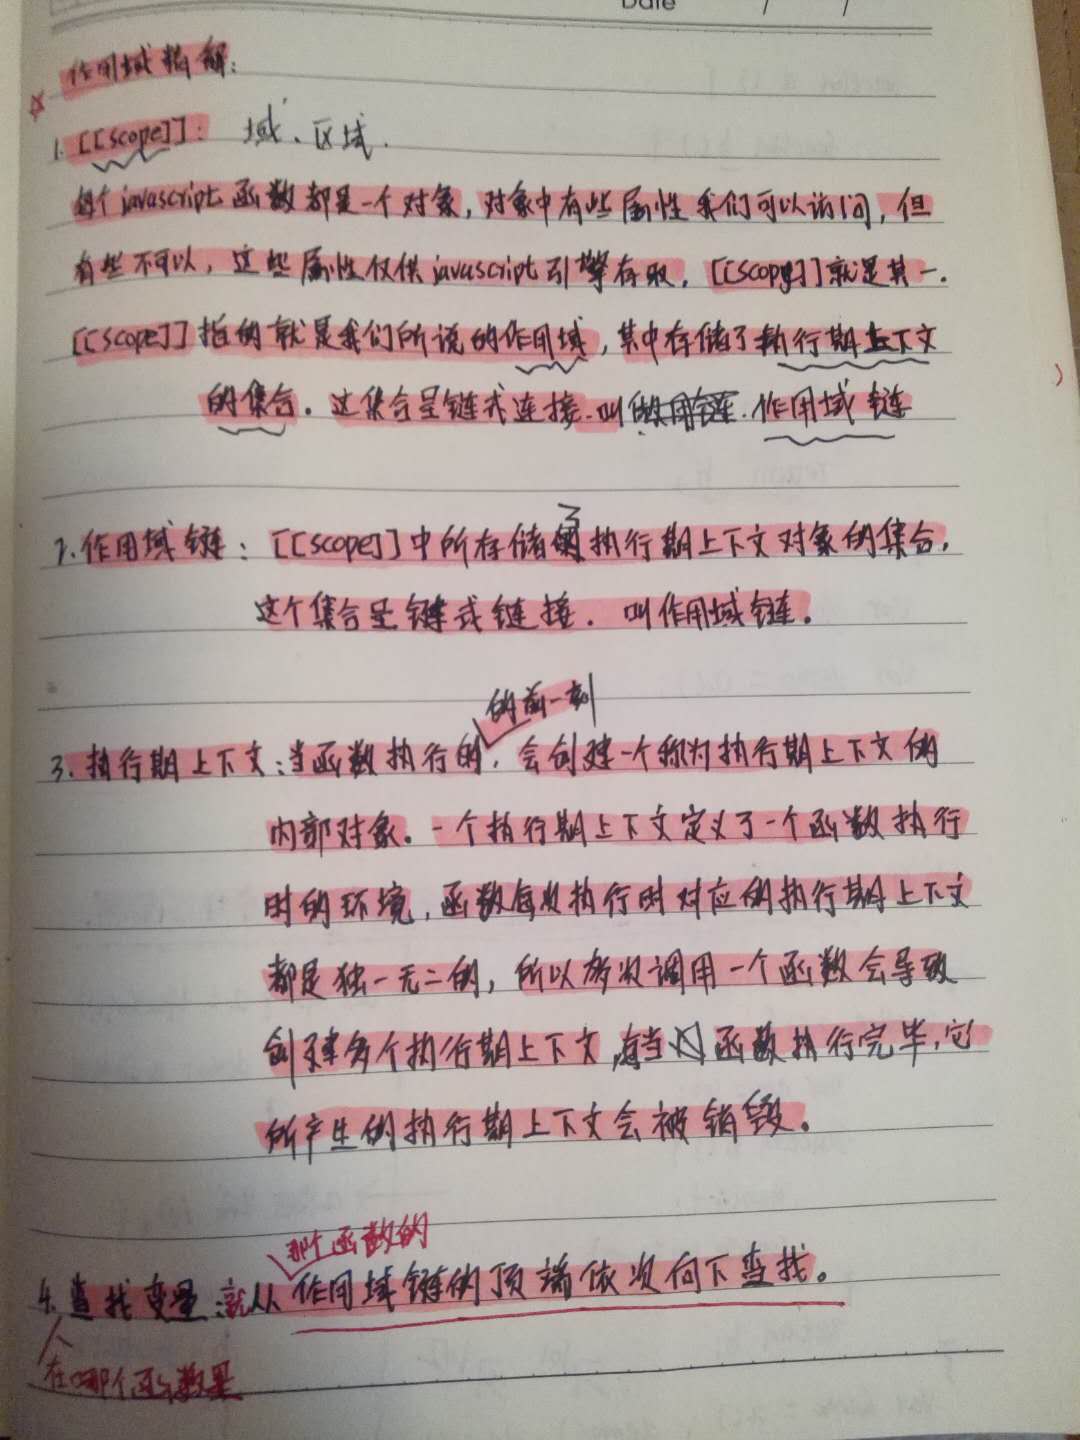 Date / /
作用域精解：
☆
1. [[scope]]： 域、区域.
每个javascript函数都是一个对象，对象中有些属性我们可以访问，但
有些不可以，这些属性仅供javascript引擎存取，[[scope]]就是其一.
[[scope]]指的就是我们所说的作用域，其中存储了执行期上下文
的集合。这集合呈链式连接.叫 作用域链
2.作用域链：[[scope]]中所存储了执行期上下文对象的集合，
这个集合呈链式链接. 叫作用域链。
的前一刻
3. 执行期上下文：当函数执行的，会创建一个称为执行期上下文的
内部对象。一个执行期上下文定义了一个函数执行
时的环境，函数每次执行时对应的执行期上下文
都是独一无二的，所以多次调用一个函数会导致
创建多个执行期上下文，当函数执行完毕，它
所产生的执行期上下文会被销毁。
那个函数的
4.查找变量：就从作用域链的顶端依次向下查找。
在哪个函数里